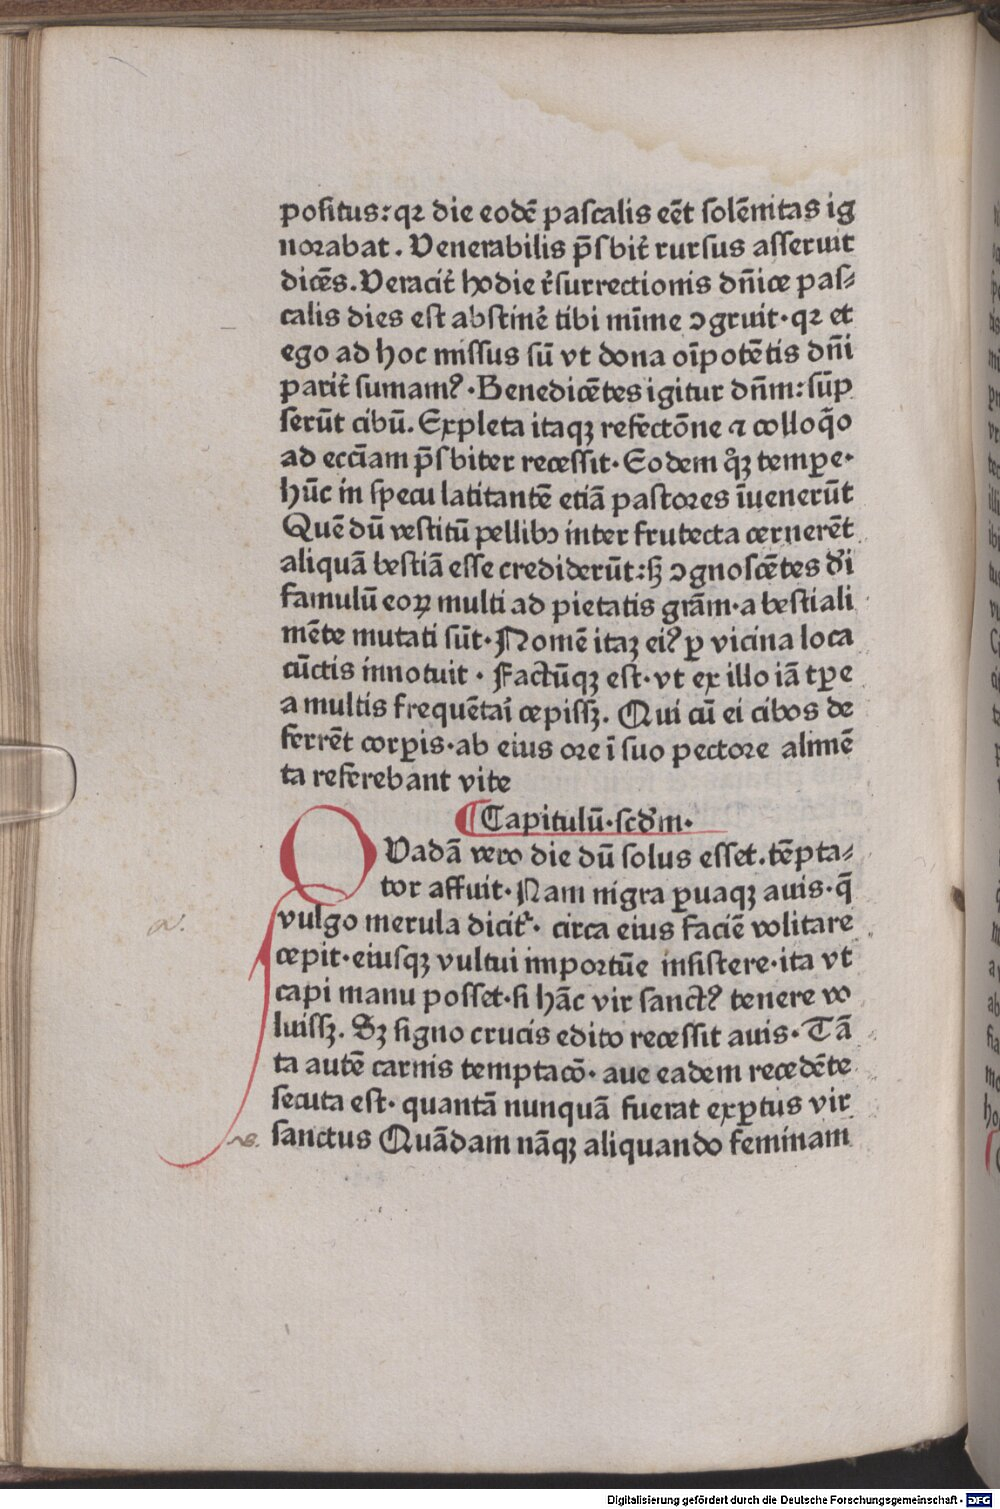 poſitus:qꝛ die eodē paſcalis eēt ſolēnitas ig
noꝛabat. Venerabilis p̄ſbit̉ rurſus aſſeruit
dicēs. Veracit̉ hodie r̉ſurrectionis dn̄ice paſ⸗
calis dies eſt abſtinē̉ tibi mīme ↄgruit·qꝛ et
ego ad hoc miſſus ſū vt dona oīpotētis dn̄i
parit̉ ſumamꝰ·Benedicētes igitur dn̄m:ſūp
ſerūt cibū. Expleta itaqꝫ refectōne ⁊ colloq̄o
ad eccīam p̄ſbiter receſſit·Eodem qͦꝫ temꝑe·
hūc in ſpecu latitantē etiā paſtores īuenerūt
Quē dū veſtitū pellibꝰ inter frutecta cernerēt
aliquā beſtiā eſſe crediderūt:ſꝫ ↄgnoſcētes d̓i
famulū eoꝝ multi ad pietatis grām·a beſtiali
mēte mutati ſūt·Nomē itaꝫ eiꝰ ꝑ vicina loca
cūctis innotuit · Factūqꝫ eſt·vt ex illo iā tꝑe
a multis frequētai̓ cepiſſꝫ. Qui cū ei cibos de
ferrēt coꝛꝑis·ab eius ore ī ſuo pectore alimē
ta referebant vite
¶Capitulū·ſcd̓m·
QVadā vero die dū ſolus eſſet.tēpta⸗
tor affuit·Nam nigra ꝑuaqꝫ auis·q̄
vulgo merula dicit̉· circa eius faciē volitare
cepit·eiuſqꝫ vultui importūe inſiſtere·ita vt
capi manu poſſet·ſi hāc vir ſanctꝰ tenere vo
luiſſꝫ. Sꝫ ſigno crucis edito receſſit auis·Tā
ta autē carnis temptacō· aue eadem recedēte
ſecuta eſt· quantā nunquā fuerat exꝑtus vir
ſanctus Quādam nāqꝫ aliquando feminam
Digitalisierung gefördert durch die Deutsche Forschungsgemeinschaft - DFG